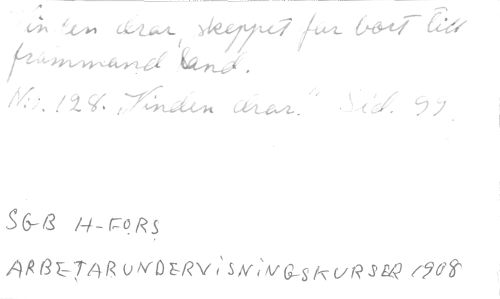 Vinden drar, skeppet fur bort till
främmand land.
N:o 128. "Vinden drar." Sid. 99.
SGB H-FORS
ARBETARUNDERVISNINGSKURSER 1908